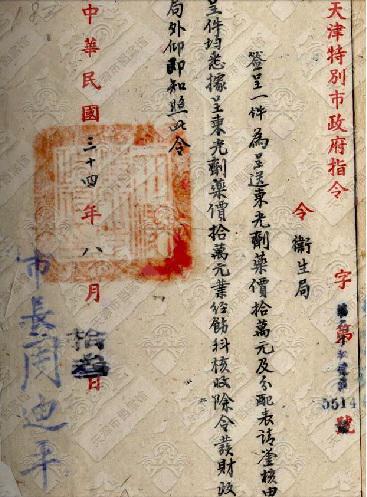 天津特別市政府指令
字第5514號
令衛生局
簽呈一件為呈送東光劑藥價拾萬元及分配表請鑒核由
呈件均悉據呈東光劑藥價拾萬元業經飭科核收除令發財政
局外仰即知照此令
中華民國三十四年八月拾叁日
市長周迪平